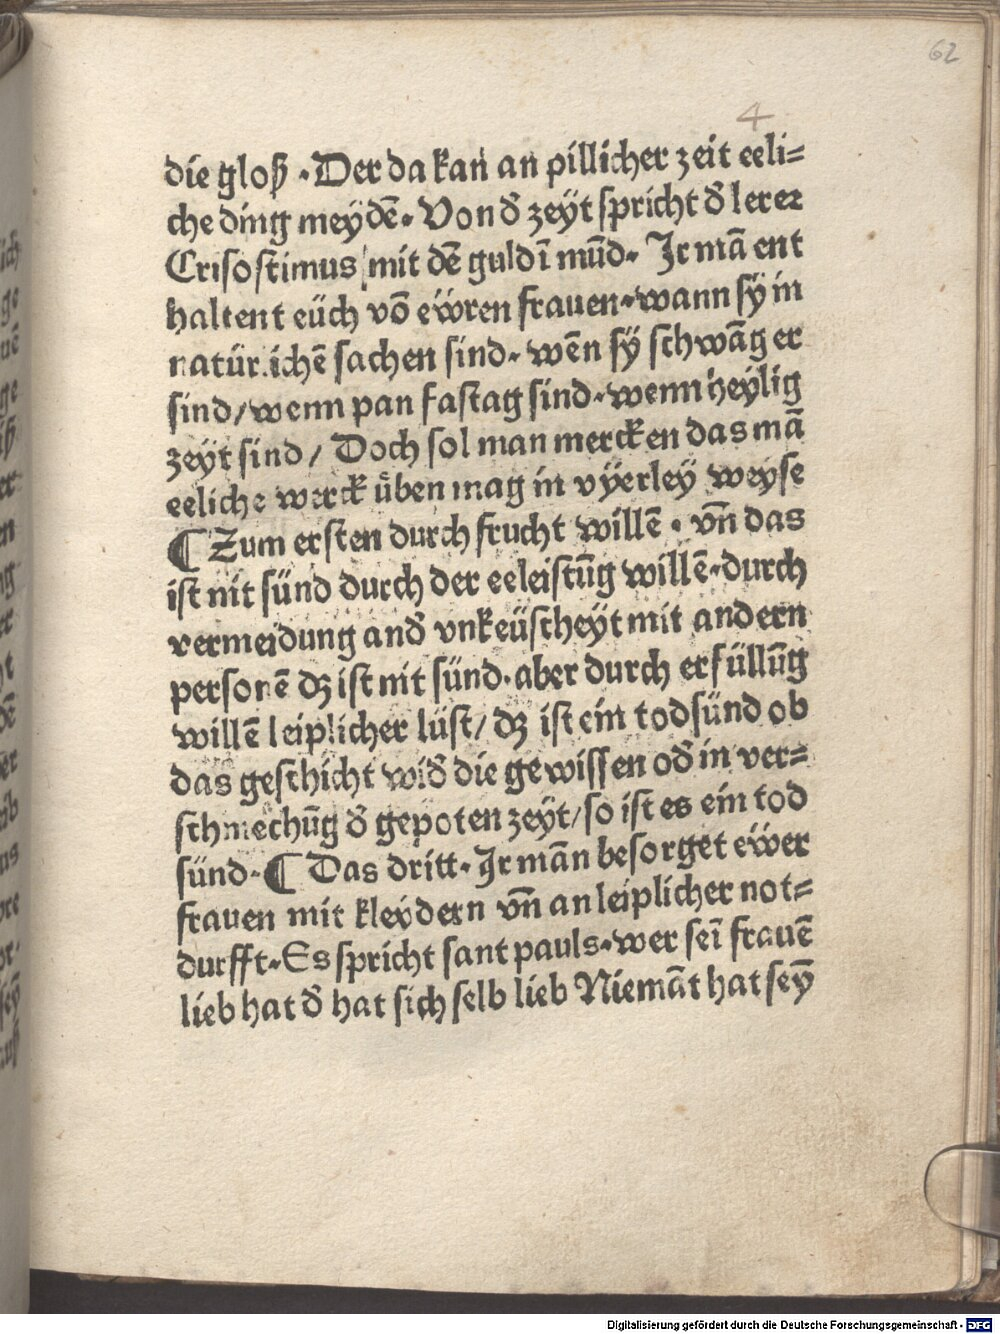 62
4
die gloß . Der da kan an pillicher zeit eeli-
che ding meydē. Von d̄ zeyt spricht d̄ lerer
Crisostimus mit dē guldī mūd. Jr mā ent
haltent eüch vō eẅren frauen. wann sÿ in
natürlichē sachen sind. wēn sÿ schwāger
sind/ wenn pan fastag sind. wenn heylig
zeyt sind / Doch sol man mercken das mā
eeliche werck üben mag in vÿerley weyse
¶ Zum ersten durch frucht willē . vn̄ das
ist nit sünd durch der eeleistūg willē. durch
vermeidung and̄ vnkeüscheÿt mit andern
personē dz ist nit sünd. aber durch erfüllūg
willē leiplicher lüst/ dz ist ein todsünd ob
das geschicht wid̄ die gewissen od̄ in ver-
schmechūg d̄ gepoten zeÿt/ so ist es ein tod
sünd. ¶ Das dritt. Jr mān besorget eẅer
frauen mit kleydern vn̄ an leiplicher not-
durfft. Es spricht sant pauls. wer seī frauē
lieb hat d̄ hat sich selb lieb Niemāt hat seȳ
Digitalisierung gefördert durch die Deutsche Forschungsgemeinschaft - DFG